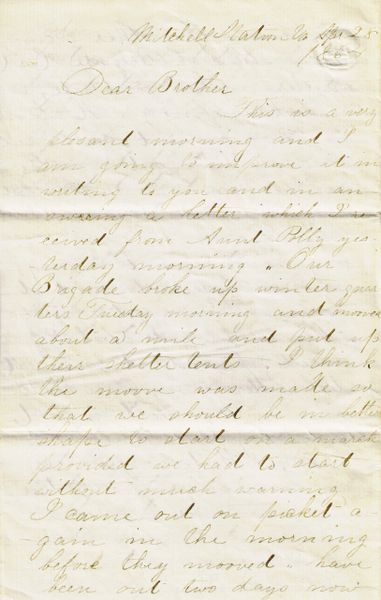 Mitchell Station Va Apr 25
Dear Brother
This is a very
plesant morning and I
am going to improve it in
writing to you and in an
swering a letter which I re
ceived from Aunt Polly yes
terday morning. Our
Bigade broke up winter quar
ters Tuesday morning and mooved
about a mile and put up
their shelter tents. I think
the moove was made so
that we should be in better
shape to start on a march
provided we had to start
without much warning
I came out on picket a-
gain in the morning
before they mooved. have
been out two days now